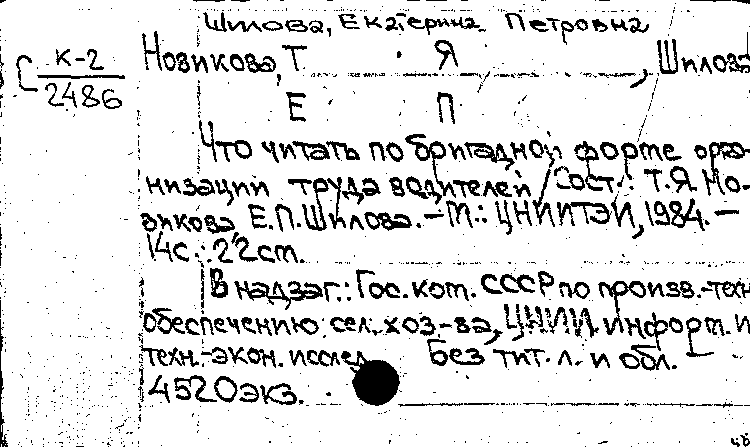 Шилова, Екатерина Петровна
К-2 Новикова, Т Я , Шилова
С 2486
Е П
Что читать по бригадной форме орга-
низации труда водителей / Сост.: Т.Я. Но-
викова, Е.П. Шилова. - М.: ЦНИИТЭИ, 1984. -
14 с.; 22 см.
В надзаг.: Гос. ком. СССР по произв.-техн
обеспечению сел. хоз-ва, ЦНИИ информ. и
техн.-экон. исслед Без тит. л. и обл.
4520 экз.